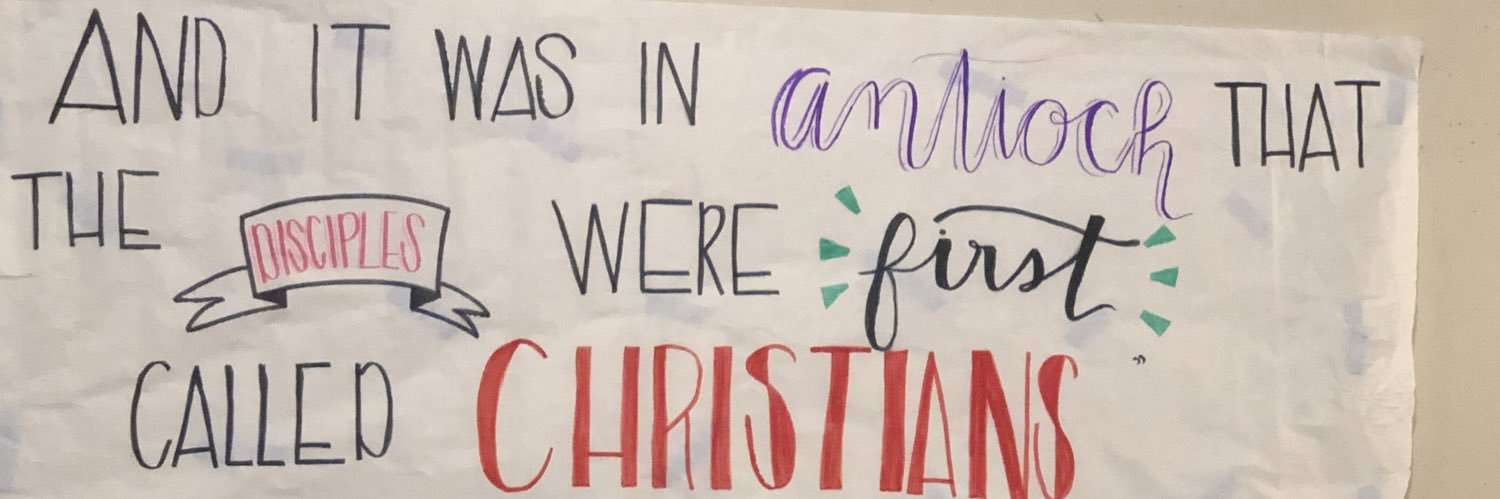 AND IT WAS IN antioch THAT
THE DISCIPLES WERE first
CALLED CHRISTIANS”